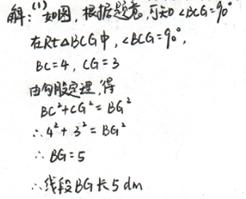 解：(1) 如图，根据题意，可知∠BCG=90°
在Rt△BCG中，∠BCG=90°，
BC=4，CG=3
由勾股定理，得
BC²+CG²=BG²
∴4²+3²=BG²
∴BG=5
∴线段BG长5dm